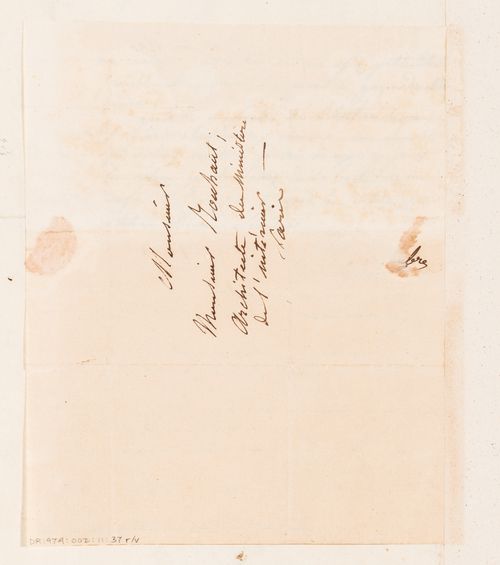 Monsieur
Monsieur Rouhault,
Architecte du Ministère
de l'intérieur —
Paris
DR 974:002:11:37 r/v